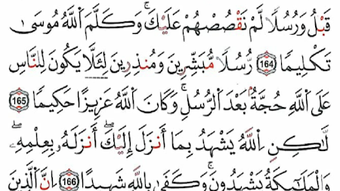 قَبْلُ وَرُسُلًا لَّمْ نَقْصُصْهُمْ عَلَيْكَ ۚ وَكَلَّمَ اللَّهُ مُوسَىٰ
تَكْلِيمًا ١٦٤ رُّسُلًا مُّبَشِّرِينَ وَمُنذِرِينَ لِئَلَّا يَكُونَ لِلنَّاسِ
عَلَى اللَّهِ حُجَّةٌ بَعْدَ الرُّسُلِ ۚ وَكَانَ اللَّهُ عَزِيزًا حَكِيمًا ١٦٥
لَّٰكِنِ اللَّهُ يَشْهَدُ بِمَا أَنزَلَ إِلَيْكَ ۖ أَنزَلَهُ بِعِلْمِهِ ۖ
وَالْمَلَائِكَةُ يَشْهَدُونَ ۚ وَكَفَىٰ بِاللَّهِ شَهِيدًا ١٦٦ إِنَّ الَّذِينَ